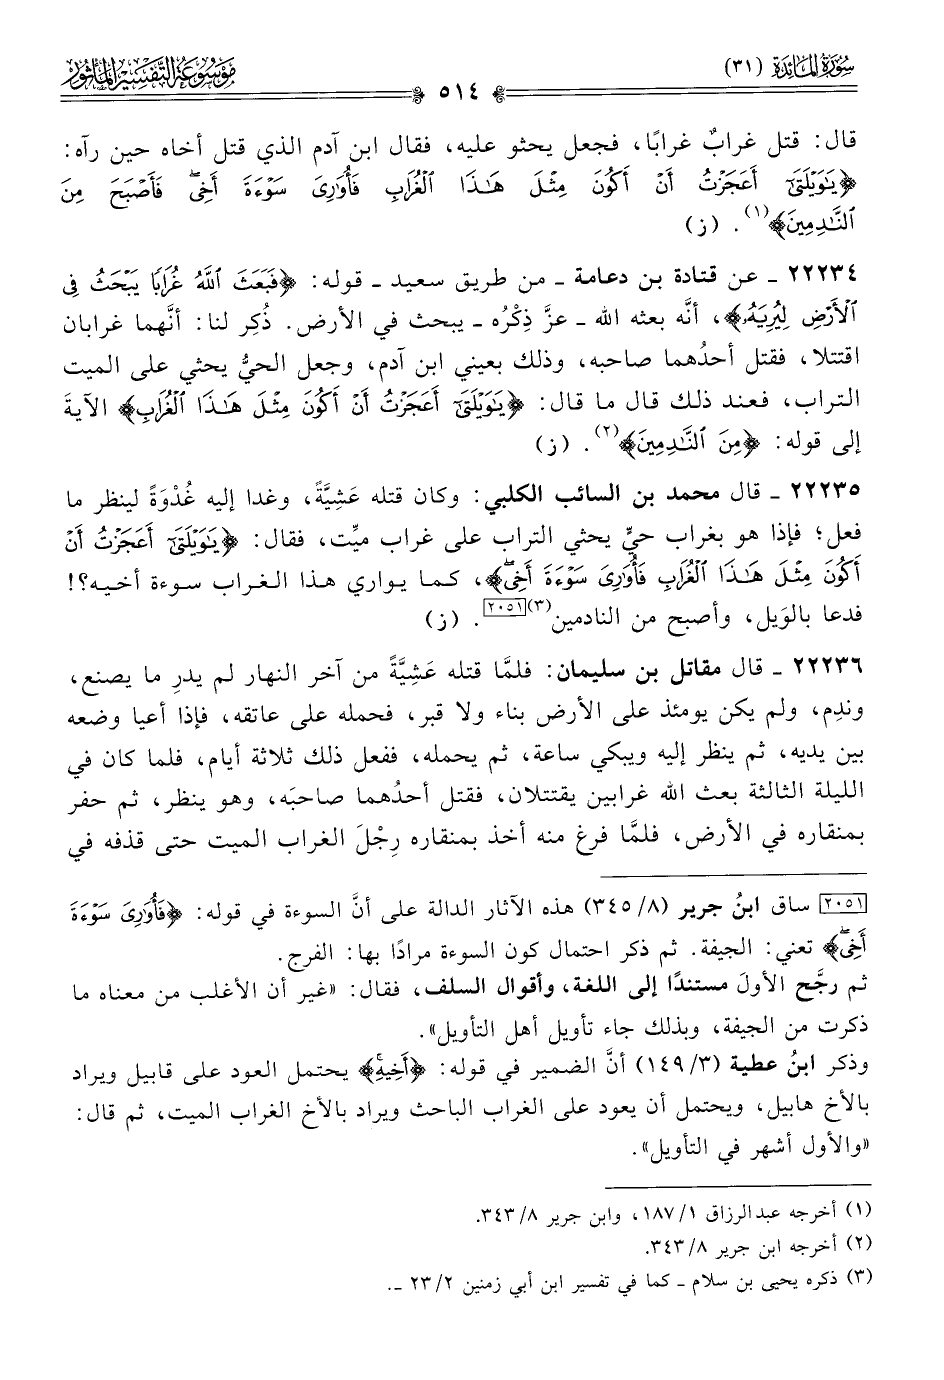 سورة المائدة (٣١)
٥١٤
موسوعة التفسير المأثور
قال: قتل غرابٌ غرابًا، فجعل يحثو عليه، فقال ابن آدم الذي قتل أخاه حين رآه:
﴿يَـٰوَيْلَتَىٰٓ أَعَجَزْتُ أَنْ أَكُونَ مِثْلَ هَـٰذَا ٱلْغُرَابِ فَأُوَٰرِىَ سَوْءَةَ أَخِىۖ فَأَصْبَحَ مِنَ
ٱلنَّـٰدِمِينَ﴾(١). (ز)
٢٢٢٣٤ ـ عن قتادة بن دعامة ـ من طريق سعيد ـ قوله: ﴿فَبَعَثَ ٱللَّهُ غُرَابًا يَبْحَثُ فِى
ٱلْأَرْضِ لِيُرِيَهُۥ﴾، أنَّه بعثه الله ـ عزَّ ذِكْرُه ـ يبحث في الأرض. ذُكِر لنا: أنَّهما غرابان
اقتتلا، فقتل أحدُهما صاحبه، وذلك بعيني ابن آدم، وجعل الحيُّ يحثي على الميت
التراب، فعند ذلك قال ما قال: ﴿يَـٰوَيْلَتَىٰٓ أَعَجَزْتُ أَنْ أَكُونَ مِثْلَ هَـٰذَا ٱلْغُرَابِ﴾ الآيةَ
إلى قوله: ﴿مِنَ ٱلنَّـٰدِمِينَ﴾(٢). (ز)
٢٢٢٣٥ ـ قال محمد بن السائب الكلبي: وكان قتله عَشِيَّةً، وغدا إليه غُدْوَةً لينظر ما
فعل؛ فإذا هو بغراب حيٍّ يحثي التراب على غراب ميِّت، فقال: ﴿يَـٰوَيْلَتَىٰٓ أَعَجَزْتُ أَنْ
أَكُونَ مِثْلَ هَـٰذَا ٱلْغُرَابِ فَأُوَٰرِىَ سَوْءَةَ أَخِىۖ﴾، كما يواري هذا الغراب سوءة أخيه؟!
فدعا بالوَيل، وأصبح من النادمين(٣)[٢٠٥١]. (ز)
٢٢٢٣٦ ـ قال مقاتل بن سليمان: فلمَّا قتله عَشِيَّةً من آخر النهار لم يدرِ ما يصنع،
وندِم، ولم يكن يومئذ على الأرض بناء ولا قبر، فحمله على عاتقه، فإذا أعيا وضعه
بين يديه، ثم ينظر إليه ويبكي ساعة، ثم يحمله، ففعل ذلك ثلاثة أيام، فلما كان في
الليلة الثالثة بعث الله غرابين يقتتلان، فقتل أحدُهما صاحبَه، وهو ينظر، ثم حفر
بمنقاره في الأرض، فلمَّا فرغ منه أخذ بمنقاره رِجْلَ الغراب الميت حتى قذفه في
[٢٠٥١] ساق ابنُ جرير (٣٤٥/٨) هذه الآثار الدالة على أنَّ السوءة في قوله: ﴿فَأُوَٰرِىَ سَوْءَةَ
أَخِىۖ﴾ تعني: الجيفة. ثم ذكر احتمال كون السوءة مرادًا بها: الفرج.
ثم رجَّح الأولَ مستندًا إلى اللغة، وأقوال السلف، فقال: «غير أن الأغلب من معناه ما
ذكرت من الجيفة، وبذلك جاء تأويل أهل التأويل».
وذكر ابنُ عطية (١٤٩/٣) أنَّ الضمير في قوله: ﴿أَخِيهِ﴾ يحتمل العود على قابيل ويراد
بالأخ هابيل، ويحتمل أن يعود على الغراب الباحث ويراد بالأخ الغراب الميت، ثم قال:
«والأول أشهر في التأويل».
(١) أخرجه عبدالرزاق ١٨٧/١، وابن جرير ٣٤٣/٨.
(٢) أخرجه ابن جرير ٣٤٣/٨.
(٣) ذكره يحيى بن سلام ـ كما في تفسير ابن أبي زمنين ٢٣/٢ ـ.